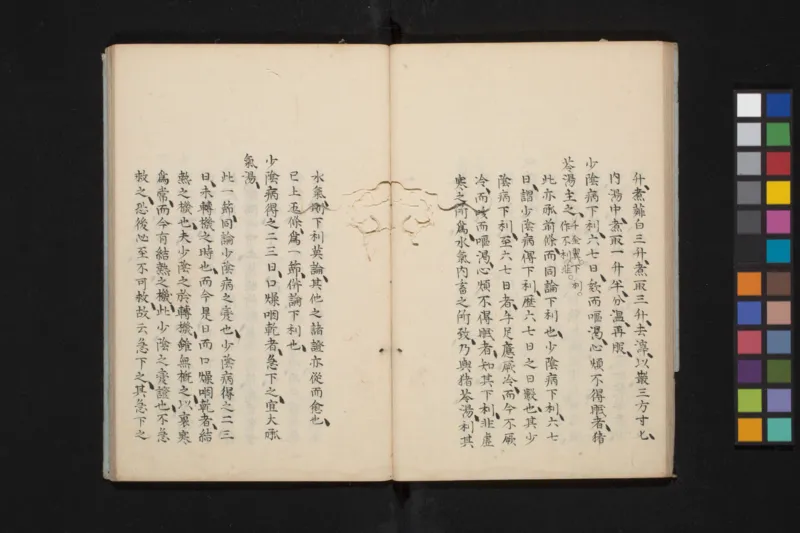 升煮薤白三升煮取三升去滓以散三方寸匕
內湯中煮取一升半分溫再服
少陰病下利六七日欬而嘔渴心煩不得眠者豬
苓湯主之
此亦承前條而同論下利也少陰病下利六七
日謂少陰病得下利歷六七日之日數也其少
陰病下利至六七日者手足應厥冷而今不厥
冷而咳而嘔渴心煩不得眠者知其下利非虛
寒之所為水氣內畜之所致乃與豬苓湯利其
水氣則下利其論其他之諸證亦從而愈也
已上五條為一節併論下利也
少陰病得之二三日口燥咽乾者急下之宜大承
氣湯
此一節同論少陰病之變也少陰病得之二三
日未轉機之時也而今是日而口燥咽乾者結
熱之機也夫少陰之於轉機雖無機之以裏寒
為常而今有結熱之機此少陰之變證也不急
救之恐後必至不可救故云急下之其急下之